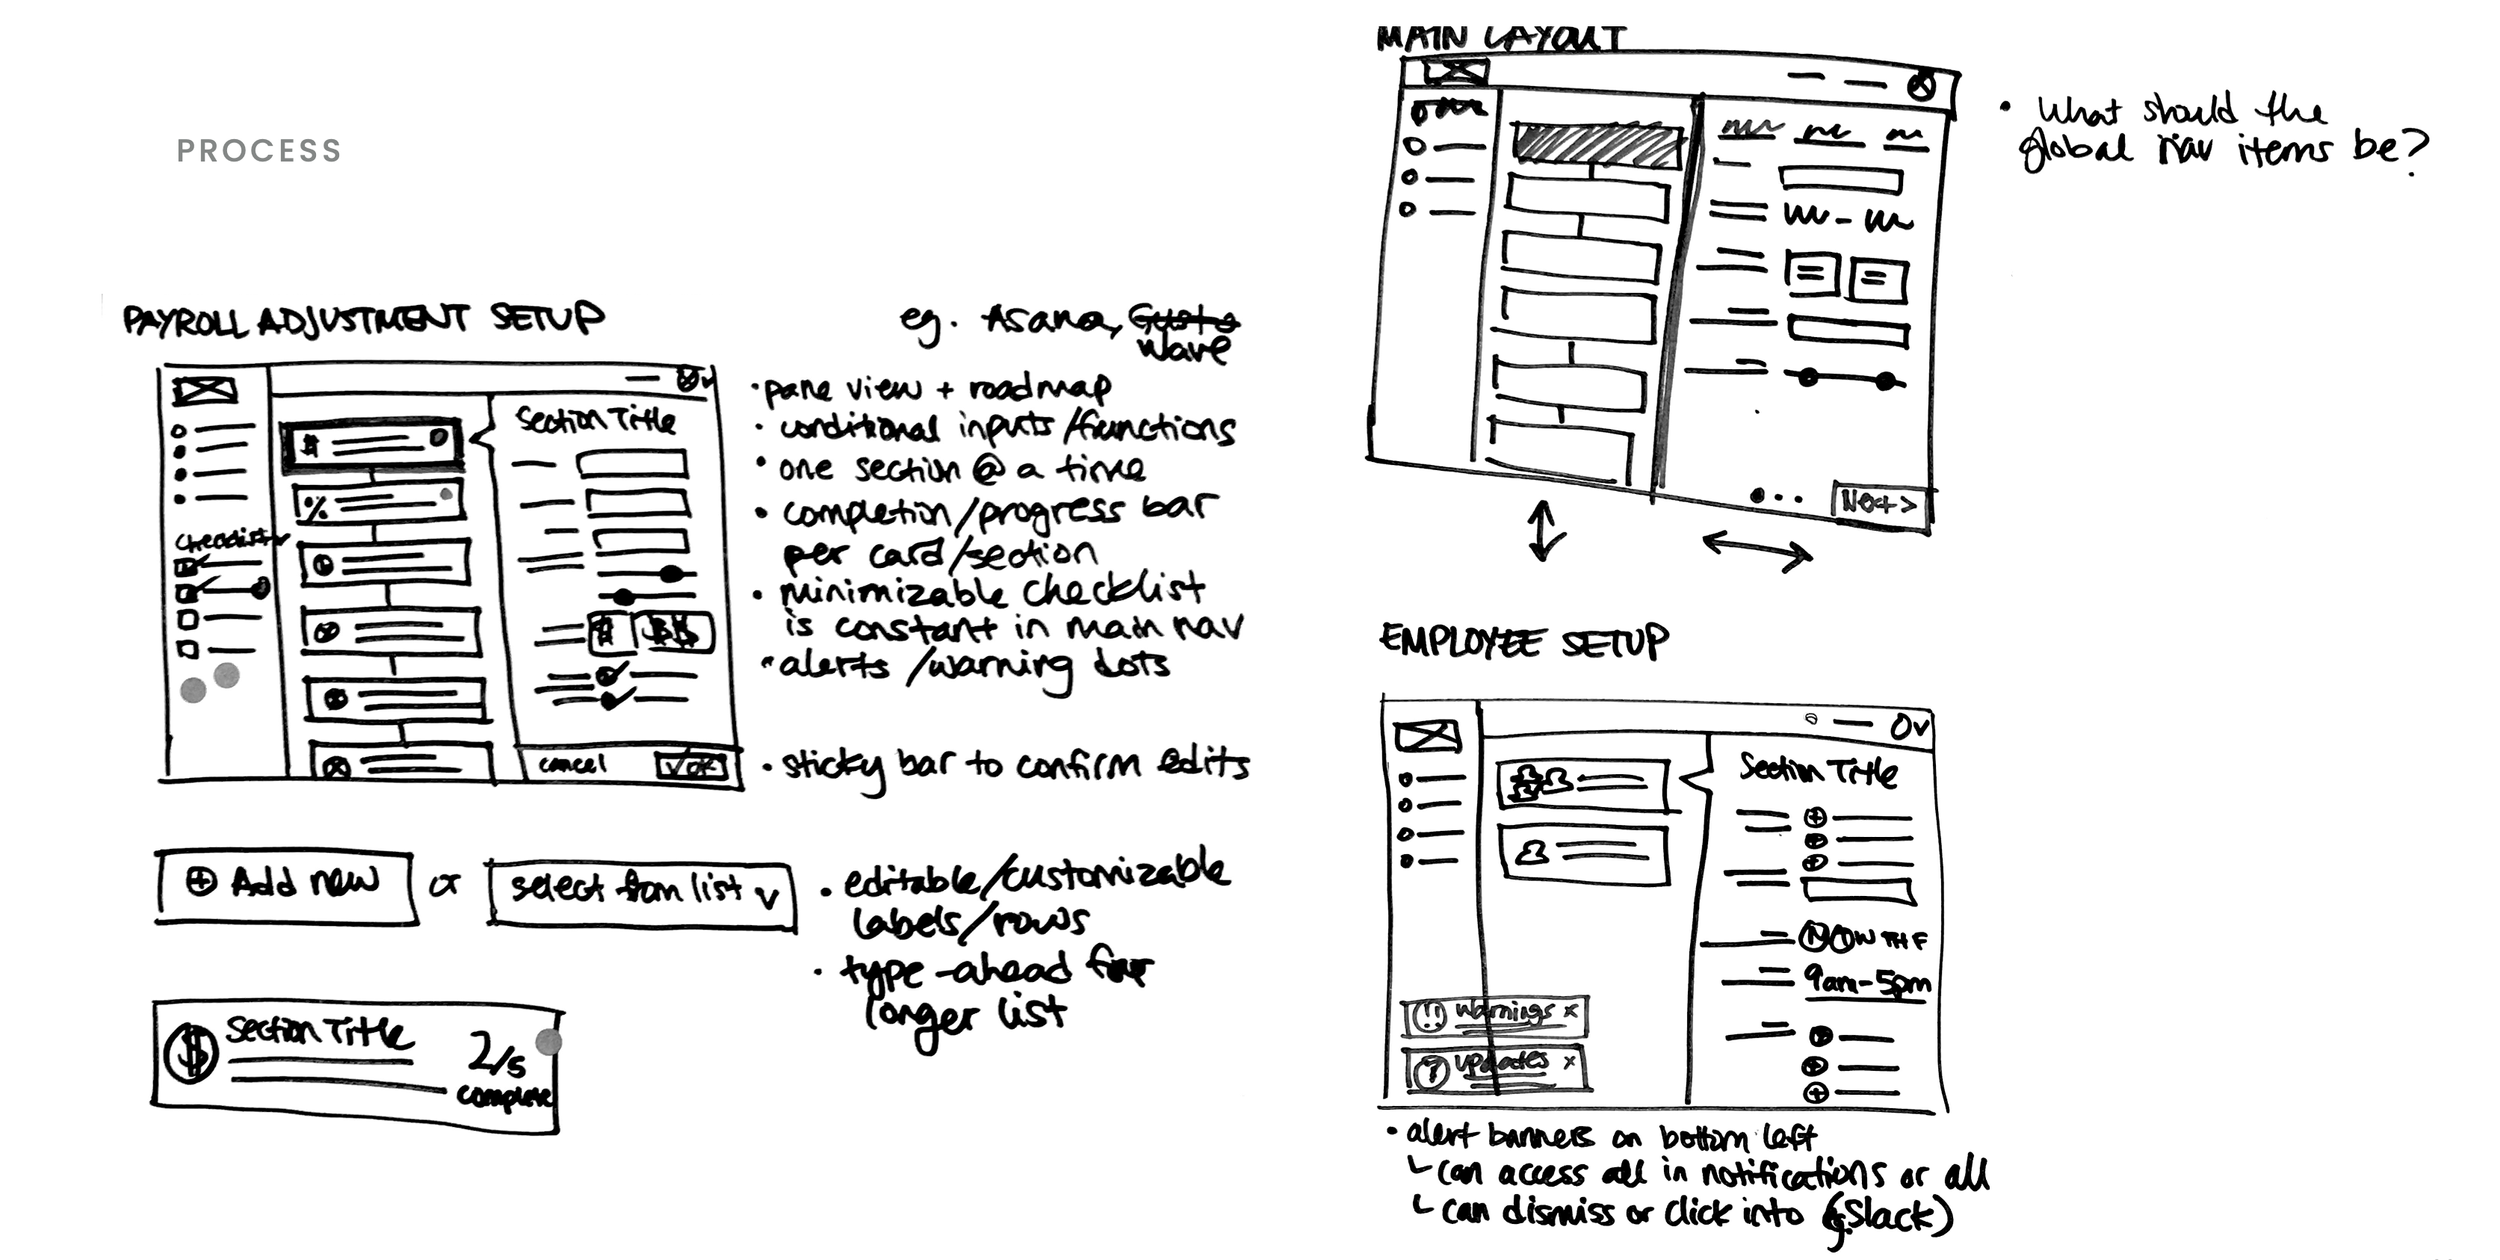 PROCESS
PAYROLL ADJUSTMENT SETUP
eg. Asana, Gusto
Wave
Section Title
#
%
Checklist
# $$
cancel
✓ OK
• pane view + roadmap
• conditional inputs/functions
• one section @ a time
• completion/progress bar
per card/section
• minimizable checklist
is constant in main nav
• alerts/warning dots
• sticky bar to confirm edits
⊕ Add new
or
select from list v
• editable/customizable
labels/rows
• type-ahead for
longer list
$ Section Title
2/5
complete
MAIN LAYOUT
• What should the
global nav items be?
Next >
EMPLOYEE SETUP
Section Title
M T W TH F
9am-5pm
!! Warnings x
? Updates x
• alert banners on bottom left
└ can access all in notifications or all
└ can dismiss or click into (eg. Slack)